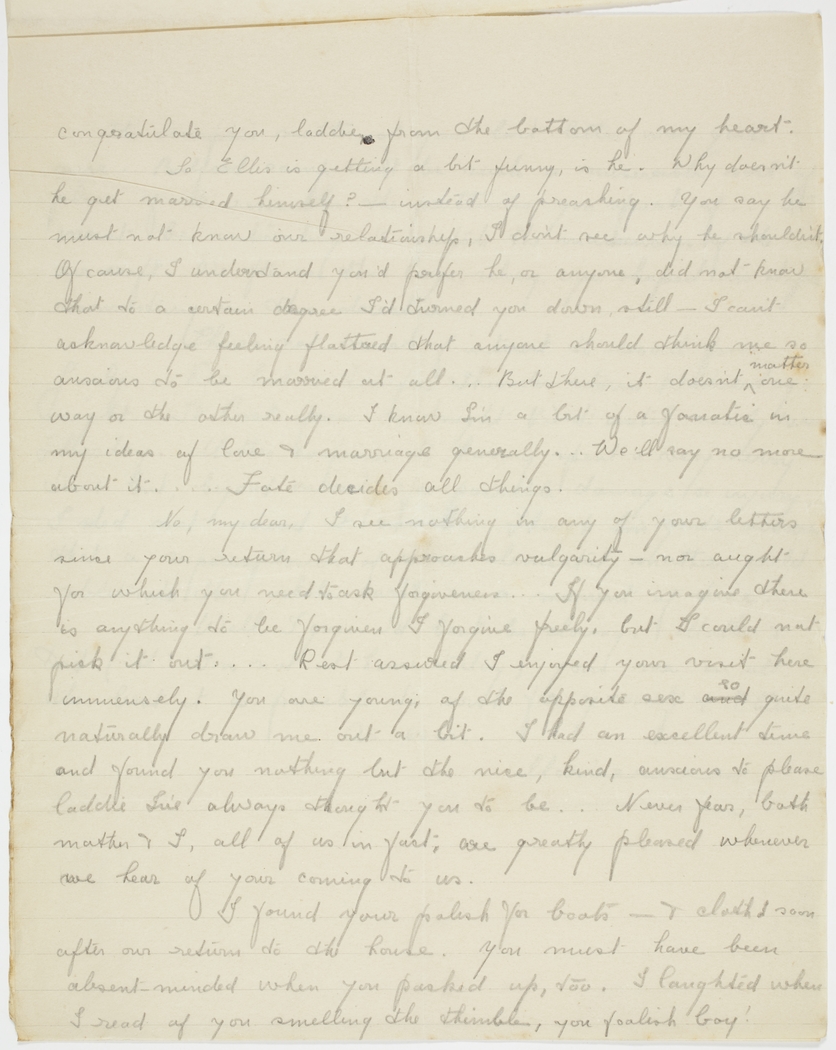 congratulate you, laddie, from the bottom of my heart.
So Ellis is getting a bit funny, is he. Why doesn't
he get married himself? — instead of preaching. You say he
must not know our relationship, I don't see why he shouldn't.
Of cause, I understand you'd prefer he, or anyone, did not know
that to a certain degree I'd turned you down, still — I can't
acknowledge feeling flattered that anyone should think me so
anxious to be married at all... But there, it doesn't matter one
way or the other really. I know I'm a bit of a fanatic in
my ideas of love & marriage generally... We'll say no more
about it. . . Fate decides all things.
No, my dear, I see nothing in any of your letters
since your return that approaches vulgarity — nor aught
for which you need to ask forgiveness... If you imagine there
is anything to be forgiven I forgive freely, but I could not
pick it out. . . . Rest assured I enjoyed your visit here
immensely. You are young, of the opposite sex and so quite
naturally draw me out a bit. I had an excellent time
and found you nothing but the nice, kind, anxious to please
laddie I've always thought you to be... Never fear, both
mother & I, all of us in fact, are greatly pleased whenever
we hear of your coming to us.
I found your polish for boots — & cloth & soon
after our return to the house. You must have been
absent-minded when you packed up, too. I laughted when
I read of you smelling the thimble, you foolish boy!